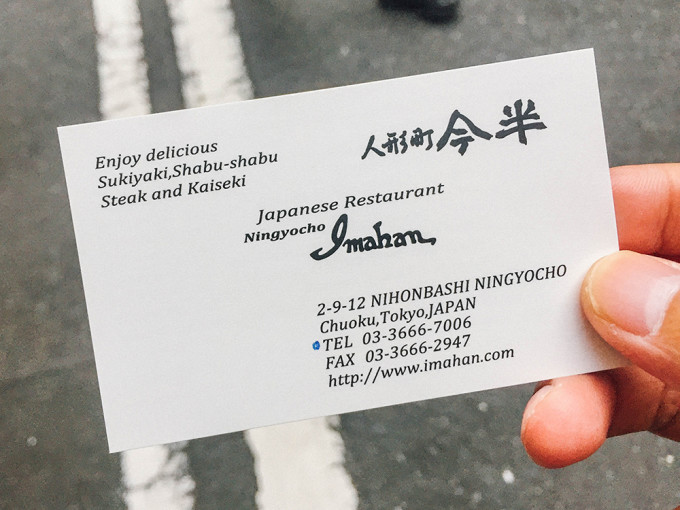 Enjoy delicious
Sukiyaki,Shabu-shabu
Steak and Kaiseki
人形町 今半
Japanese Restaurant
Ningyocho Imahan
2-9-12 NIHONBASHI NINGYOCHO
Chuoku,Tokyo,JAPAN
TEL 03-3666-7006
FAX 03-3666-2947
http://www.imahan.com